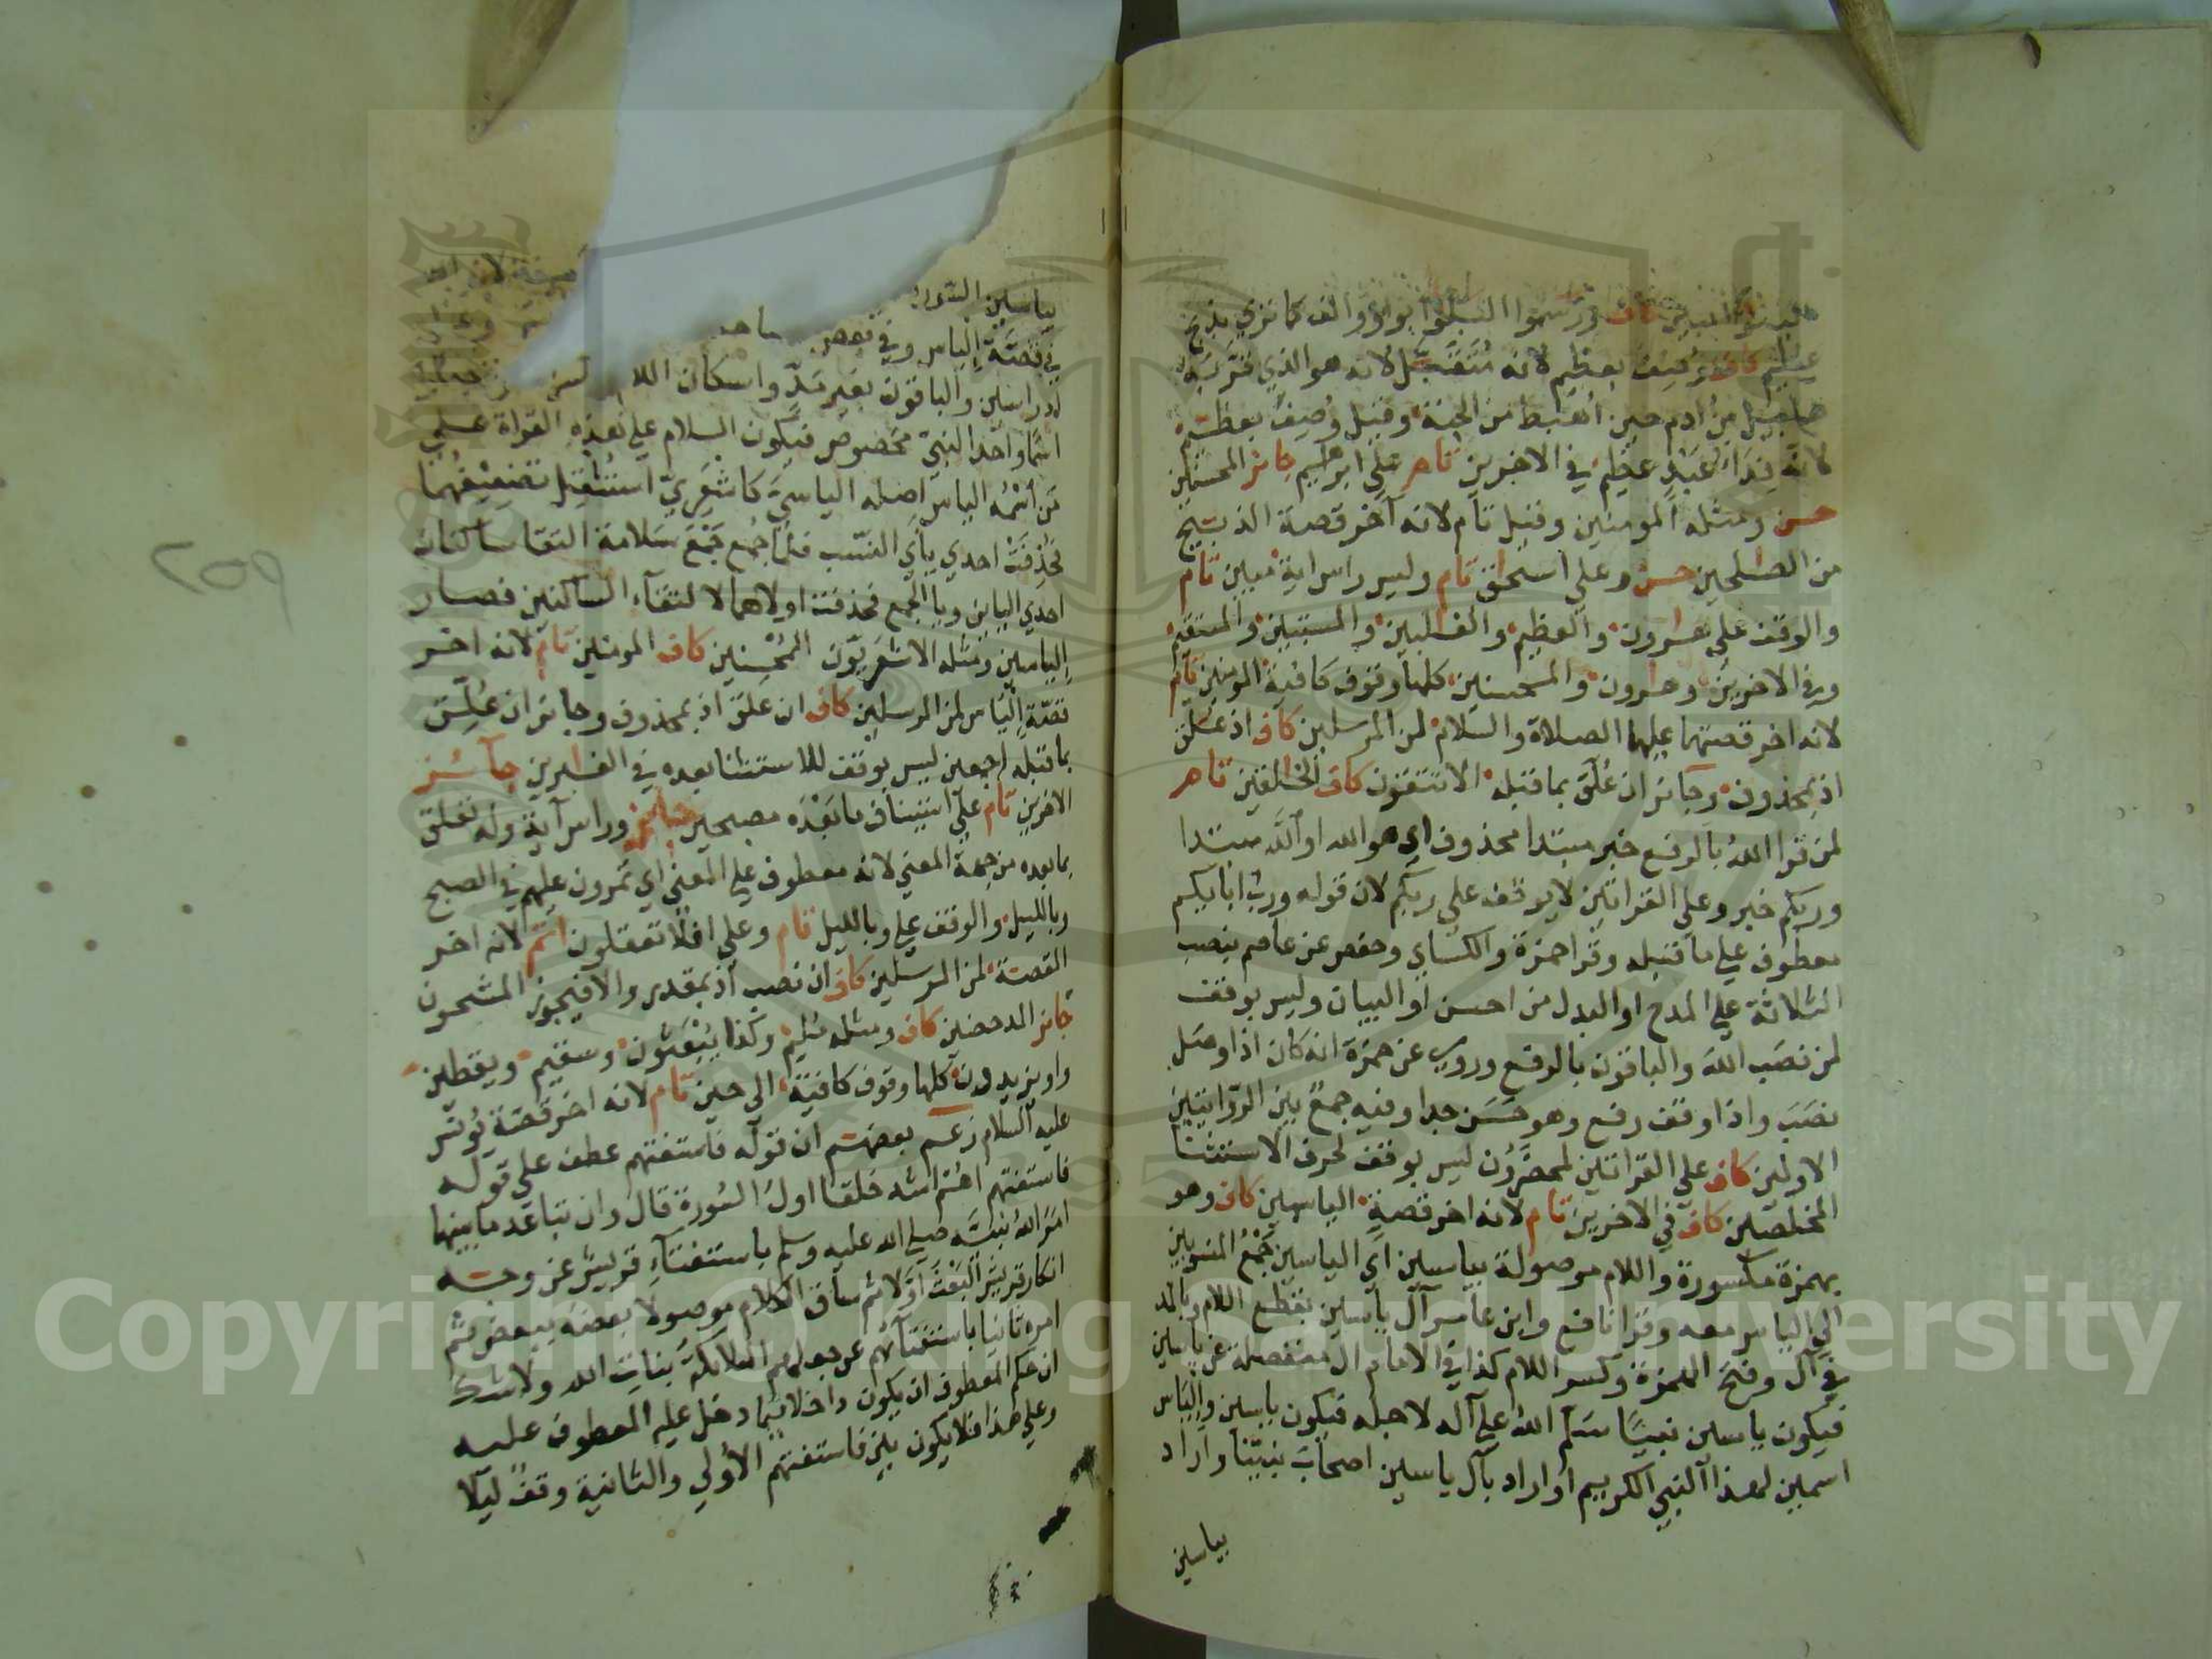 المبين كاف ورسموا البلؤا بواو والف كما تري بذبح
عظيم كاف وصف بعظيم لانه متقبل لانه هو الذي قربه
هابيل بن ادم حين اهبط من الجنة وقيل وصف بعظيم
لانه فداء عبد عظيم في الاخرين تام علي ابرهيم جائز المحسنين
حسن ومثله المومنين وقيل تام لانه آخر قصة الذبيح
من الصلحين حسن وعلي اسحق تام وليس راس اية مبين تام
والوقف علي هرون والعظيم والغلبين والمستبين والمستقيم
وفي الاخرين وهرون والمحسنين كلها وقوف كافية المومنين تام
لانه اخر قصتهما عليهما الصلاة والسلام لمن المرسلين كاف اذ علق
اذ بمحذوف وجائز ان علق بما قبله الا تتقون كاف الخالقين تام
لمن قرا الله بالرفع خبر مبتدا محذوف اي هو الله او الله مبتدا
وربكم خبر وعلي القراتين لا يوقف علي ربكم لان قوله ورب ابايكم
معطوف علي ما قبله وقرا حمزة والكساي وحفص عن عاصم بنصب
الثلاثة علي المدح او البدل من احسن او البيان وليس بوقف
لمن نصب الله والباقون بالرفع وروي عن حمزة انه كان اذا وصل
نصب واذا وقف رفع وهو حسن جدا وفيه جمع بين الروايتين
الاولين كاف علي القراتين لمحضرون ليس بوقف لحرف الاستثنا
المخلصين كاف في الاخرين تام لانه اخر قصة الياسين كاف وهو
بهمزة مكسورة واللام موصولة بياسين اي الياسين جمع المنسوبين
الي الياس معه وقرا نافع وابن عامر آل ياسين بقطع اللام وبالمد
في آل وفتح الهمزة وكسر اللام كذا في الامام ال منفصلة عن ياسين
فيكون ياسين نبيا سلم الله علي آله لاجله فيكون ياسين والياس
اسمين لهذا النبي الكريم او اراد بآل ياسين اصحاب نبينا واراد
بياسين
بياسين السورة
في قصة الياس وفي
ادراسين والباقون بغير مد واسكان اللام
اسما واحد النبي مخصوص فيكون السلام علي هذه القراة علي
من اسمه الياس اصله الياسي كاشعري استثقل تضعيفهما
فحذفت احدي ياي النسب فلما جمع جمع سلامة التقا ساكنان
احدي اليايين ويا الجمع فحذفت اولاهما لالتقاء الساكنين فصار
الياسين ومثله الاشعريون المحسنين كاف المومنين تام لانه اخر
قصة الياس لمن المرسلين كاف ان علق اذ بمحذوف وجائز ان علق
بما قبله اجمعين ليس بوقف للاستثنا بعده في الغبرين جائز
الاخرين تام علي استيناف ما بعده مصبحين جائز وراس آية وله تعلق
بما بعده من جهة المعني لانه معطوف علي المعني اي تمرون عليهم في الصبح
وبالليل والوقف علي وبالليل تام وعلي افلا تعقلون اتم لانه اخر
القصة لمن المرسلين كاف ان نصب اذ بمقدر والا فيجوز المشحون
جائز المدحضين كاف ومثله مليم وكذا يبعثون وسقيم ويقطين
واو يزيدون كلها وقوف كافية الي حين تام لانه اخر قصة يونس
عليه السلام زعم بعضهم ان قوله فاستفتهم عطف علي قوله
فاستفتهم اهم اشد خلقا اول السورة قال وان تباعد ما بينهما
امر الله نبيه صلي الله عليه وسلم باستفتاء قريش عن وجه
انكار قريش البعث اولا ثم ساق الكلام موصولا بعضه ببعض ثم
امره ثانيا باستفتائهم عن جعلهم الملائكة بنات الله ولا شك
ان حكم المعطوف ان يكون داخلا فيما دخل عليه المعطوف عليه
وعلي هذا فلا يكون بين فاستفتهم الاولي والثانية وقف ليلا
٢٥٩
Copyright © King Saud University